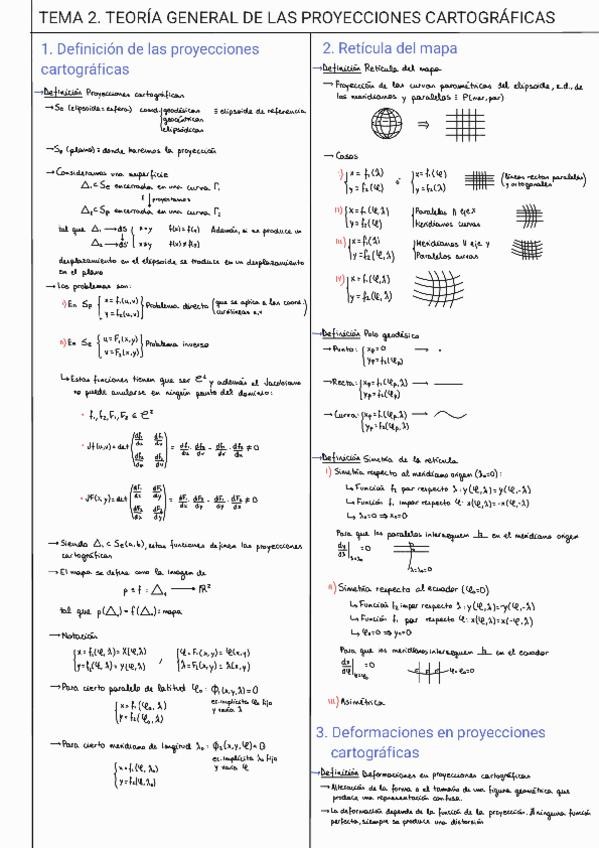 TEMA 2. TEORÍA GENERAL DE LAS PROYECCIONES CARTOGRÁFICAS
1. Definición de las proyecciones
cartográficas
→Definición Proyecciones cartográficas
→Se (elipsoide o esfera) coord. { geodésicas ≡ elipsoide de referencia
geocéntricas
elipsódicas
→Sp (plano) ≡ donde haremos la proyección
→Consideramos una superficie
△₁ ⊂ Se encerrada en una curva Γ₁
↓ proyectamos
△₂ ⊂ Sp encerrada en una curva Γ₂
tal que
Además, si se produce un
desplazamiento en el elipsoide se traduce en un desplazamiento
en el plano
→Los problemas son:
i) En Sp { x = f₁(u,v) } Problema directo (que se aplica a las coord.
y = f₂(u,v) curvilíneas u,v
ii) En Se { u = F₁(x,y) } Problema inverso
v = F₂(x,y)
↳ Estas funciones tienen que ser C² y además el Jacobiano
no puede anularse en ningún punto del dominio:
• f₁, f₂, F₁, F₂ ∈ C²
→Siendo △₁ ⊂ Se(a,b), estas funciones definen las proyecciones
cartográficas
→El mapa se define como la imagen de
p ≡ f : △₁ → ℝ²
tal que p(△₁) = f(△₁) = mapa
→Notación
{ x = f₁(φ,λ) = x(φ,λ) / { φ = F₁(x,y) = φ(x,y)
y = f₂(φ,λ) = y(φ,λ) λ = F₂(x,y) = λ(x,y)
→Para cierto paralelo de latitud φ₀: Φ₁(x,y,λ) = 0
{ x = f₁(φ₀,λ) ec. implícita φ₀ fijo
y = f₂(φ₀,λ) y varía λ
→Para cierto meridiano de longitud λ₀: Φ₂(x,y,φ) = 0
ec. implícita λ₀ fijo
{ x = f₁(φ,λ₀) y varía φ
y = f₂(φ,λ₀)
2. Retícula del mapa
→Definición Retícula del mapa
→Proyección de las curvas paramétricas del elipsoide, e.d., de
los meridianos y paralelos ≡ P(mer, par)
→Casos
i) { x = f₁(λ) ó { x = f₁(φ) (líneas rectas paralelas)
y = f₂(φ) y = f₂(λ) y ortogonales
ii) { x = f₁(φ,λ) { Paralelos ∥ eje x
y = f₂(φ) Meridianos curvas
iii) { x = f₁(λ) { Meridianos ∥ eje y
y = f₂(φ,λ) Paralelos curvas
iv) { x = f₁(φ,λ)
y = f₂(φ,λ)
→Definición Polo geodésico
→Punto: { xp = 0 →
yp = f₂(φp)
→Recta: { xp = f₁(φp,λ) →
yp = f₂(φp)
→Curva: { xp = f₁(φp,λ) →
yp = f₂(φp,λ)
→Definición Simetría de la retícula
i) Simetría respecto al meridiano origen (λ₀=0):
↳ Función f₂ par respecto λ: y(φ,λ) = y(φ,-λ)
↳ Función f₁ impar respecto
↳ λ₀=0 ⇒ x₀=0
Para que los paralelos intersequen ⊥ en el meridiano origen
λ=λ₀=0
ii) Simetría respecto al ecuador (φ₀=0)
↳ Función f₂ impar respecto
↳ Función f₁ par respecto φ: x(φ,λ) = x(-φ,λ)
↳ φ₀=0 ⇒ y₀=0
Para que los meridianos intersequen ⊥ en el ecuador
φ=φ₀=0
iii) Asimétrica
3. Deformaciones en proyecciones
cartográficas
→Definición Deformaciones en proyecciones cartográficas
→Alteración de la forma o el tamaño de una figura geométrica que
produce una representación confusa.
→La deformación depende de la función de la proyección. A ninguna función
perfecta, siempre se produce una distorsión